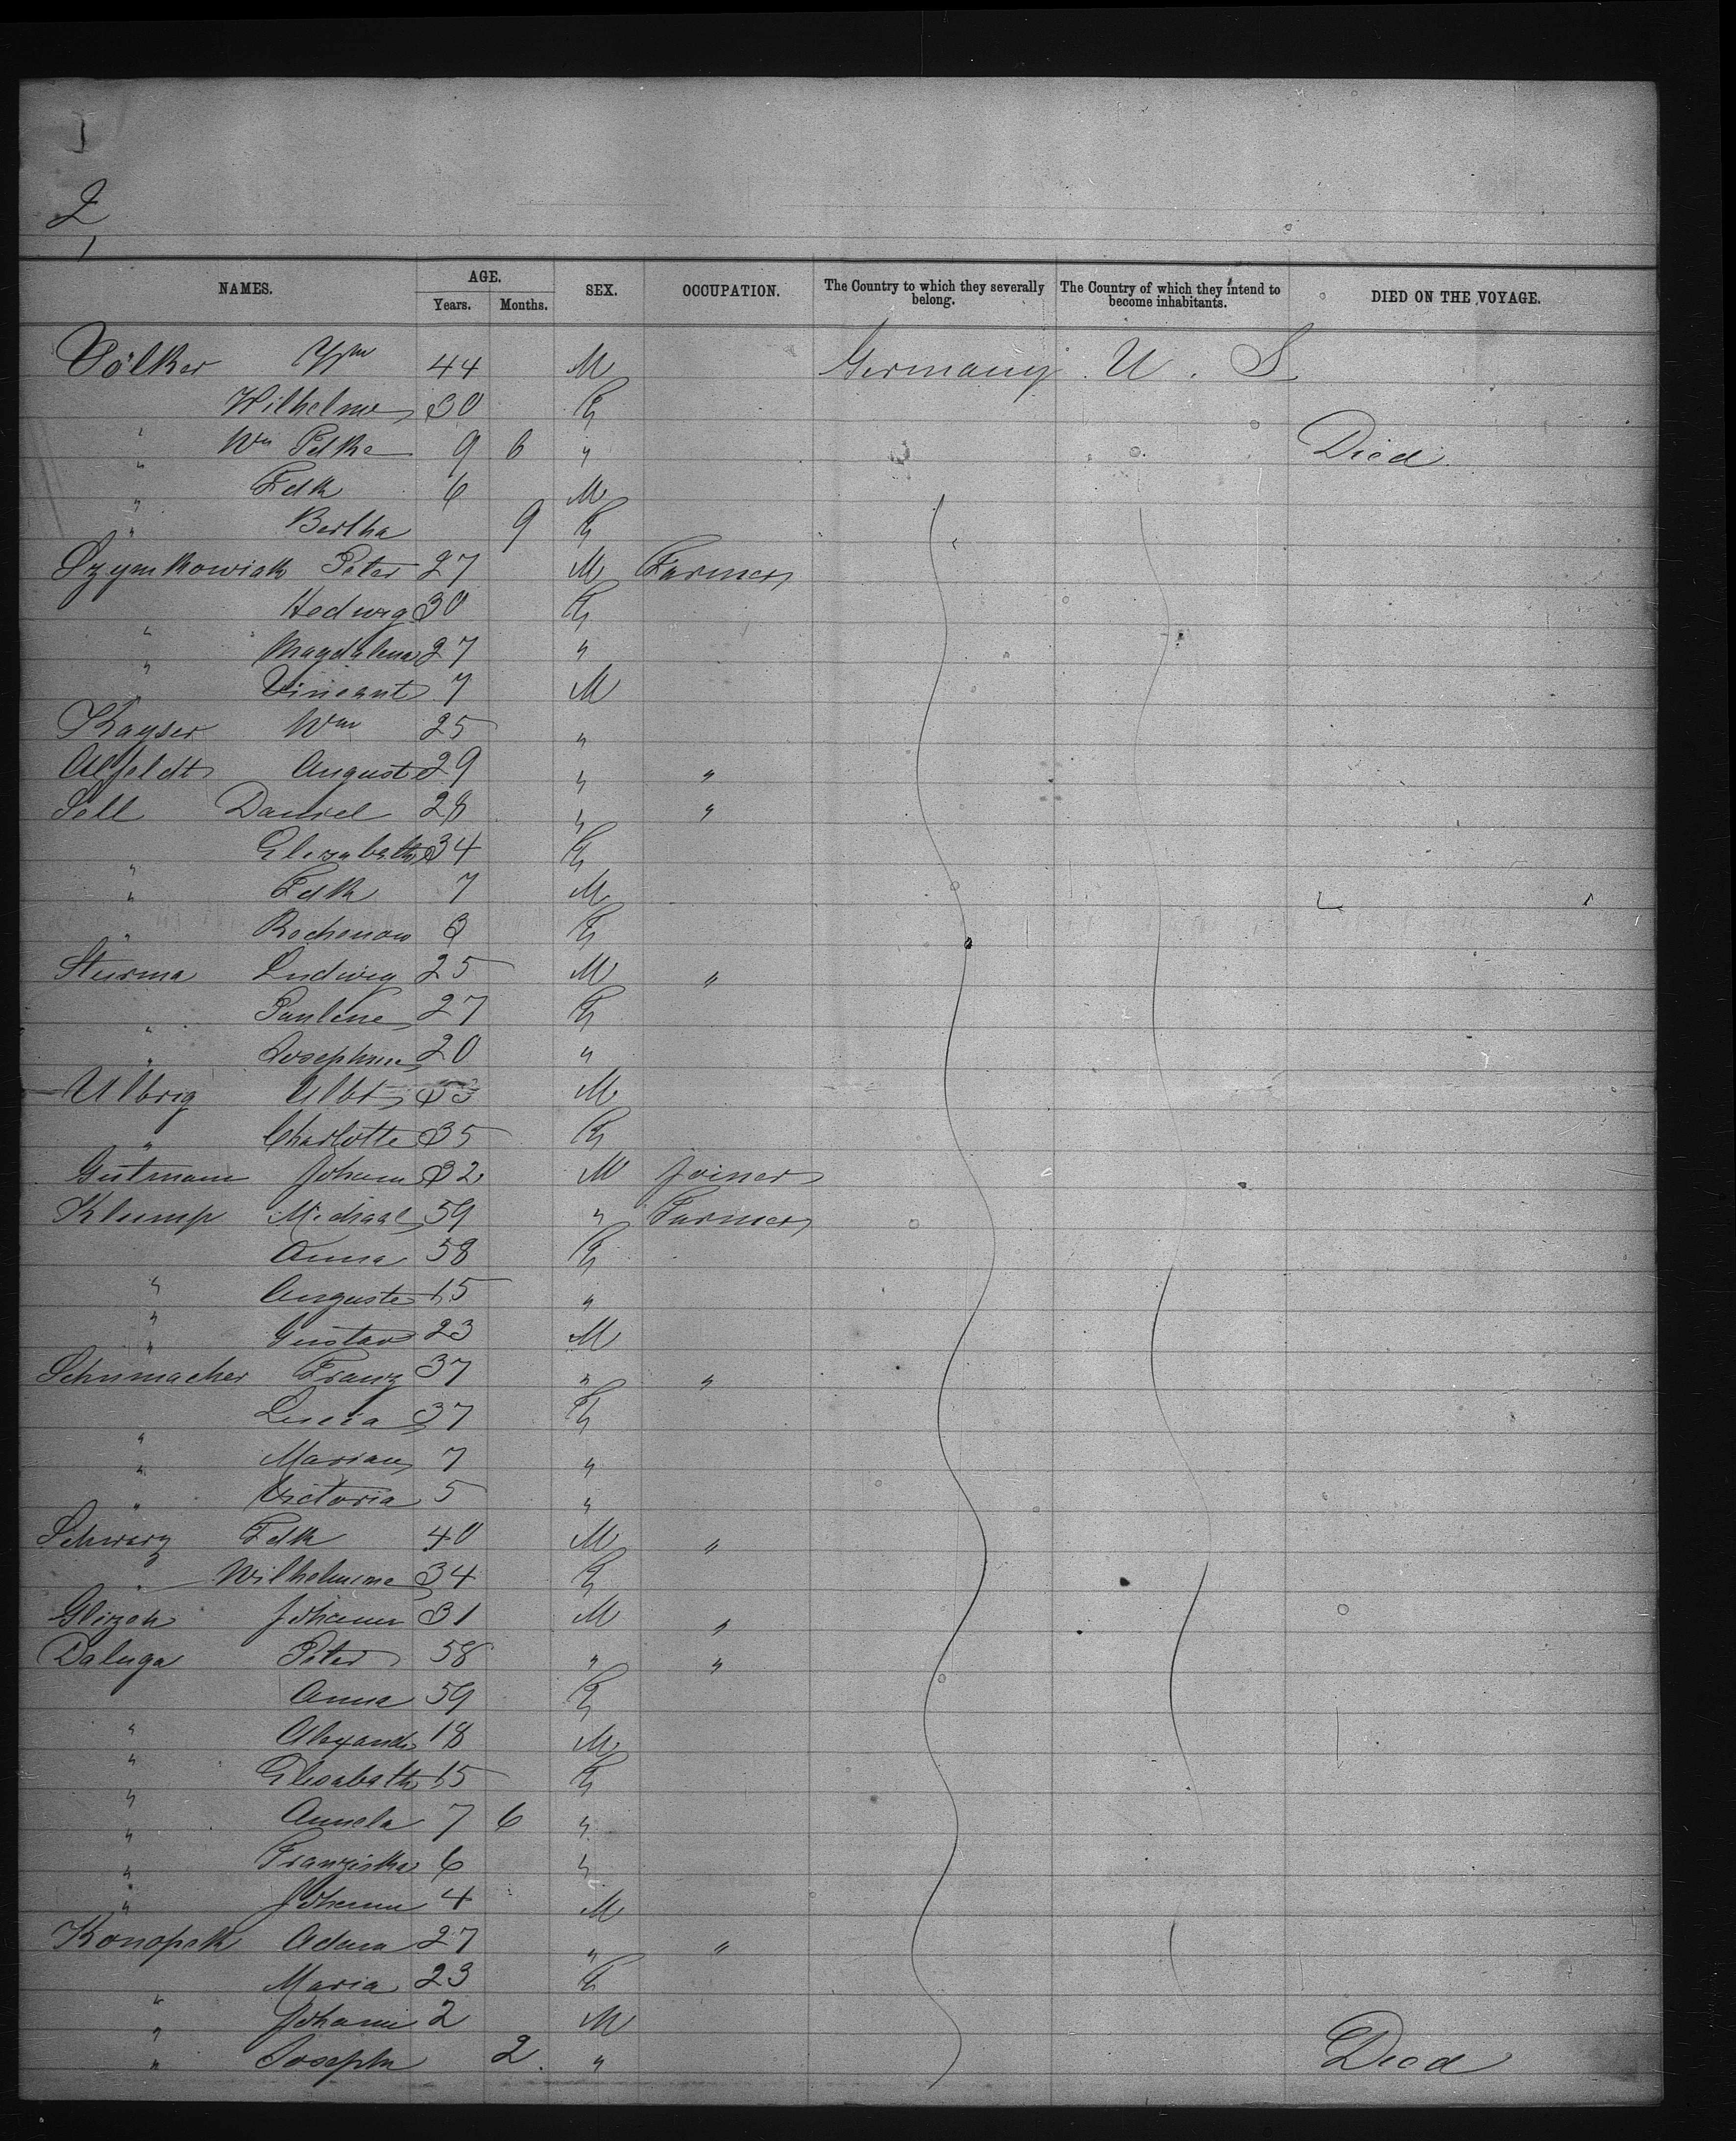 2
NAMES. AGE. SEX. OCCUPATION. The Country to which they severally belong. The Country of which they intend to become inhabitants. DIED ON THE VOYAGE.
Years. Months.
Völker Wm 44 M Germany U. S.
Wilhelme 30 F
" Wm 9 6 " Died
" Fdk 6 M
" Bertha 9 F
Szymkowiak Peter 27 M Farmer
" Hedwig 30 F
" Magdalena 27 "
" Vincent 7 M
Kayser Wm 25 "
Alfeldt August 29 " "
Sell Daniel 28 " "
" Elizabeth 34 F
" Fdk 7 M
" 3 F
Sturma Ludwig 25 M "
" Pauline 27 F
" Josephine 20 "
Ulbrig Albt 33 M
" Charlotte 35 F
Gutmann Johann 32 M Joiner
Klump Michael 59 " Farmer
" Anna 58 F
" Auguste 15 "
" Gustav 23 M
Schumacher Franz 37 " "
" Lucia 37 F
" Marian 7 "
" Victoria 5 "
Schwarz Fdk 40 M "
" Wilhelmine 34 F
Johann 31 M "
Daluga Peter 58 " "
" Anna 59 F
" Alexander 18 M
" Elisabeth 15 F
" 7 6 "
" Franziska 6 "
" Johann 4 M
Konopek Adam 27 " "
" Maria 23 F
" Johann 2 M
" Joseph 2 " Died